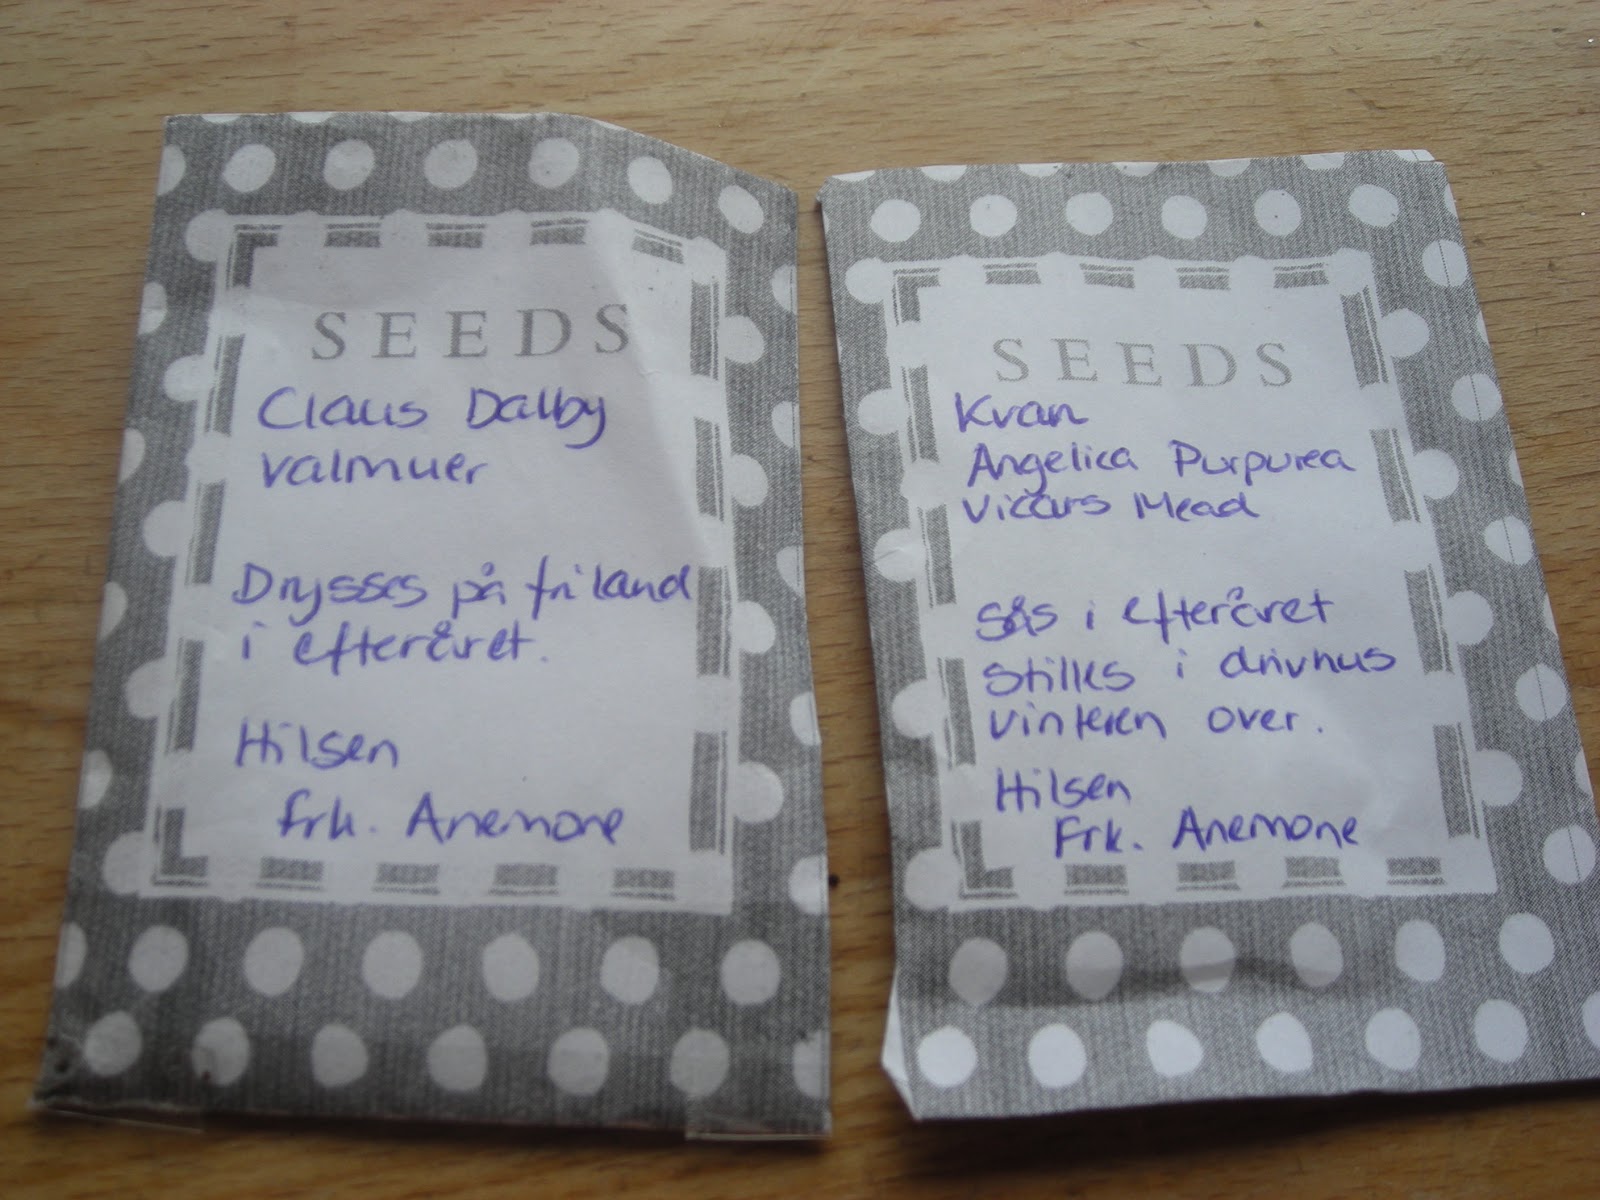 SEEDS
Claus Dalby
Valmuer
Drysses på friland
i efteråret.
Hilsen
Frk. Anemone
SEEDS
Kvan
Angelica Purpurea
Vicars Mead
Sås i efteråret
stilles i drivhus
vinteren over.
Hilsen
Frk. Anemone